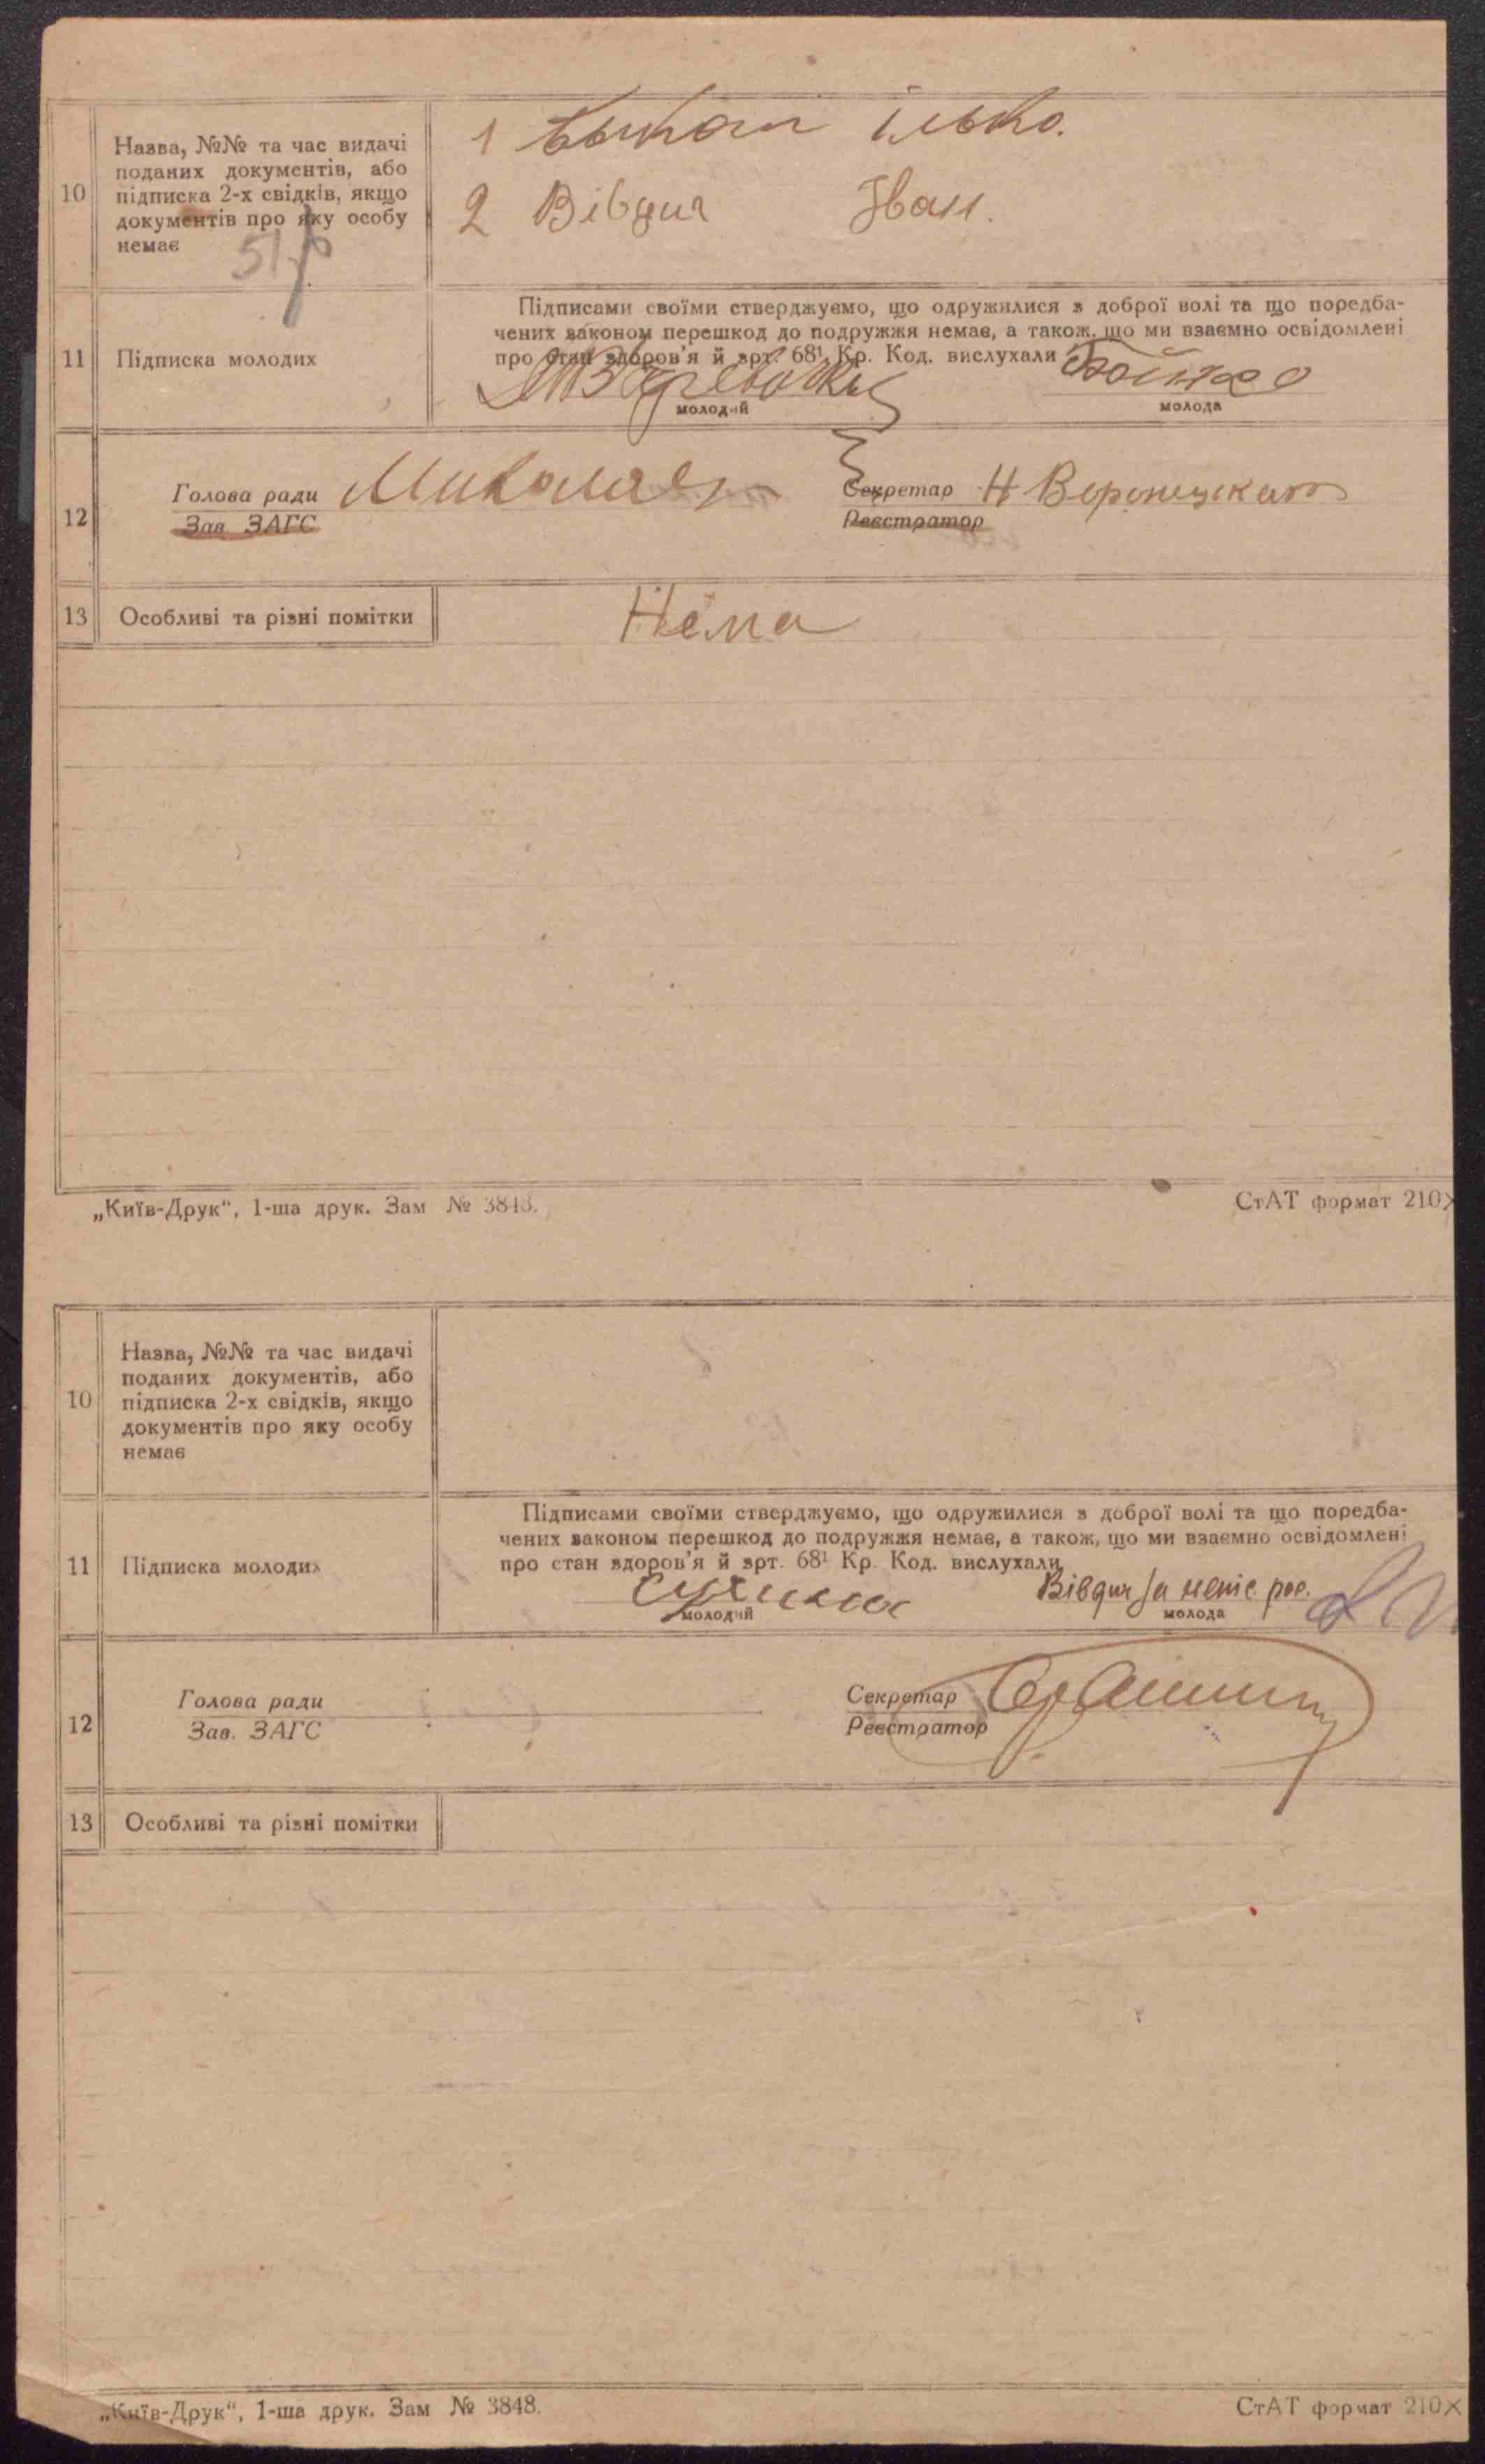 10
Назва, №№ та час видачі
поданих документів, або
підписка 2-х свідків, якщо
документів про яку особу
немає
1 Ілько.
2 Вівдич Іван.
11
Підписка молодих
Підписами своїми стверджуємо, що одружилися з доброї волі та що поредба-
чених законом перешкод до подружжя немає, а також, що ми взаємно освідомлені
про стан здоров'я й арт. 68¹ Кр. Код. вислухали
Бойко
молодий
молода
12
Голова ради
Зав. ЗАГС
Секретар Н
Реєстратор
13
Особливі та різні помітки
Нема
„Київ-Друк“, 1-ша друк. Зам № 3848.
СтАТ формат 210×
10
Назва, №№ та час видачі
поданих документів, або
підписка 2-х свідків, якщо
документів про яку особу
немає
11
Підписка молодих
Підписами своїми стверджуємо, що одружилися з доброї волі та що поредба-
чених законом перешкод до подружжя немає, а також, що ми взаємно освідомлені
про стан здоров'я й арт. 68¹ Кр. Код. вислухали
Вівдич за непис.
молодий
молода
12
Голова ради
Зав. ЗАГС
Секретар
Реєстратор
13
Особливі та різні помітки
„Київ-Друк“, 1-ша друк. Зам № 3848.
СтАТ формат 210×